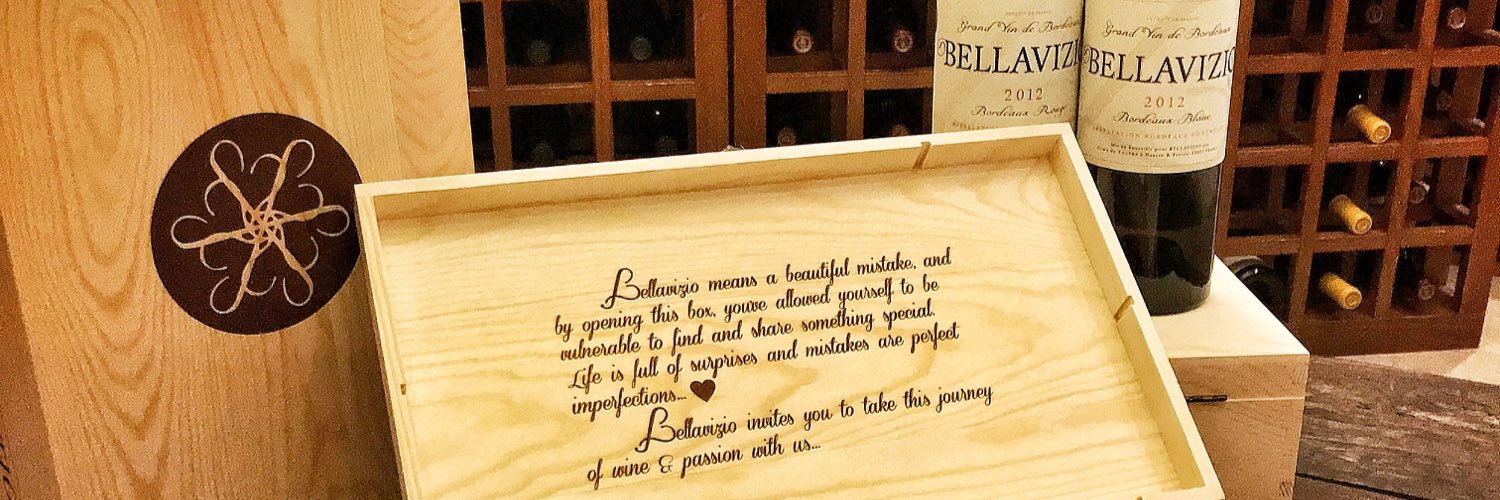 Grand Vin de Bordeaux
BELLAVIZI
2012
Bordeaux Rouge
Grand Vin de Bordeaux
BELLAVIZIO
2012
Bordeaux Blanc
Bellavizio means a beautiful mistake, and
by opening this box, youve allowed yourself to be
vulnerable to find and share something special.
Life is full of surprises and mistakes are perfect
imperfections...
Bellavizio invites you to take this journey
of wine & passion with us...